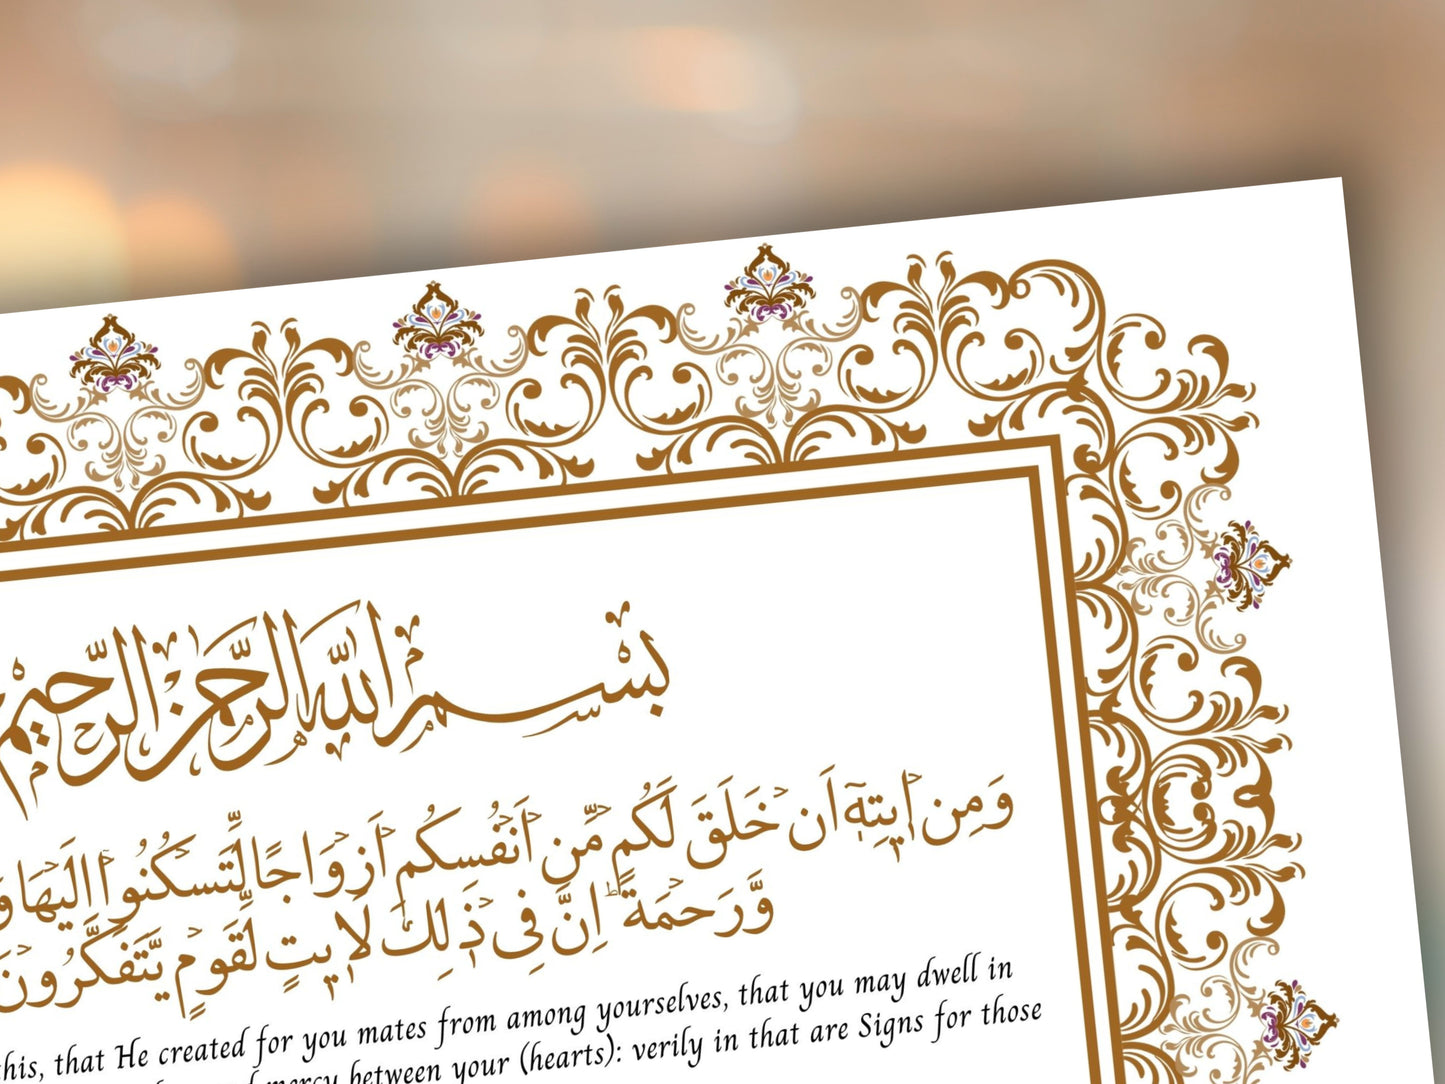 بِسْمِ اللَّهِ الرَّحْمَٰنِ الرَّحِيمِ
وَمِنۡ اٰيٰتِهٖۤ اَنۡ خَلَقَ لَكُمۡ مِّنۡ اَنۡفُسِكُمۡ اَزۡوَاجًا لِّتَسۡكُنُوۡۤا اِلَيۡهَا
وَّرَحۡمَةً ؕ اِنَّ فِىۡ ذٰ لِكَ لَاٰيٰتٍ لِّقَوۡمٍ يَّتَفَكَّرُوۡنَ
this, that He created for you mates from among yourselves, that you may dwell in
mercy between your (hearts): verily in that are Signs for those